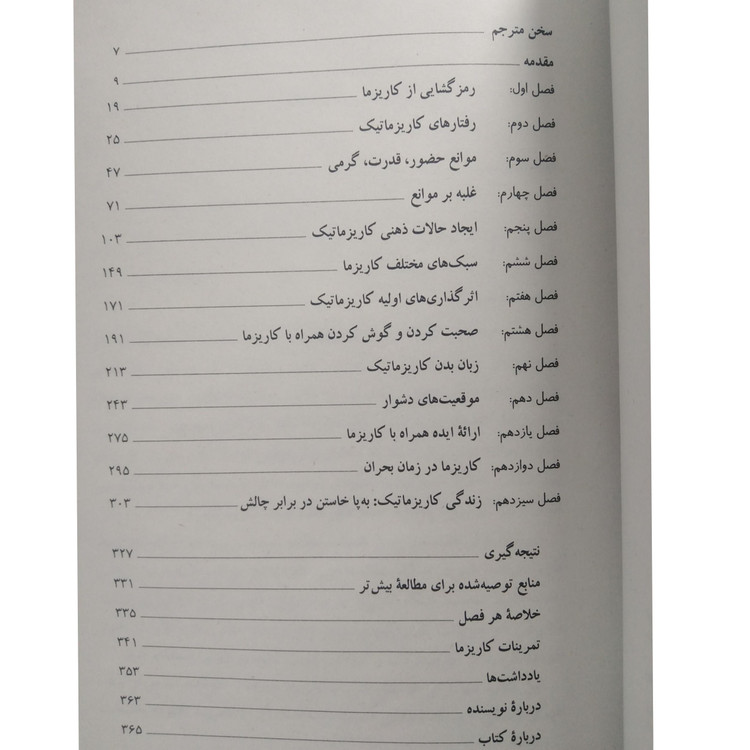 سخن مترجم ۷
مقدمه ۹
فصل اول: رمزگشایی از کاریزما ۱۹
فصل دوم: رفتارهای کاریزماتیک ۲۵
فصل سوم: موانع حضور، قدرت، گرمی ۴۷
فصل چهارم: غلبه بر موانع ۷۱
فصل پنجم: ایجاد حالات ذهنی کاریزماتیک ۱۰۳
فصل ششم: سبک‌های مختلف کاریزما ۱۴۹
فصل هفتم: اثرگذاری‌های اولیه کاریزماتیک ۱۷۱
فصل هشتم: صحبت کردن و گوش کردن همراه با کاریزما ۱۹۱
فصل نهم: زبان بدن کاریزماتیک ۲۱۳
فصل دهم: موقعیت‌های دشوار ۲۴۳
فصل یازدهم: ارائهٔ ایده همراه با کاریزما ۲۷۵
فصل دوازدهم: کاریزما در زمان بحران ۲۹۵
فصل سیزدهم: زندگی کاریزماتیک: به‌پا خاستن در برابر چالش ۳۰۳
نتیجه‌گیری ۳۲۷
منابع توصیه‌شده برای مطالعهٔ بیش‌تر ۳۳۱
خلاصهٔ هر فصل ۳۳۵
تمرینات کاریزما ۳۴۱
یادداشت‌ها ۳۵۳
دربارهٔ نویسنده ۳۶۳
دربارهٔ کتاب ۳۶۵